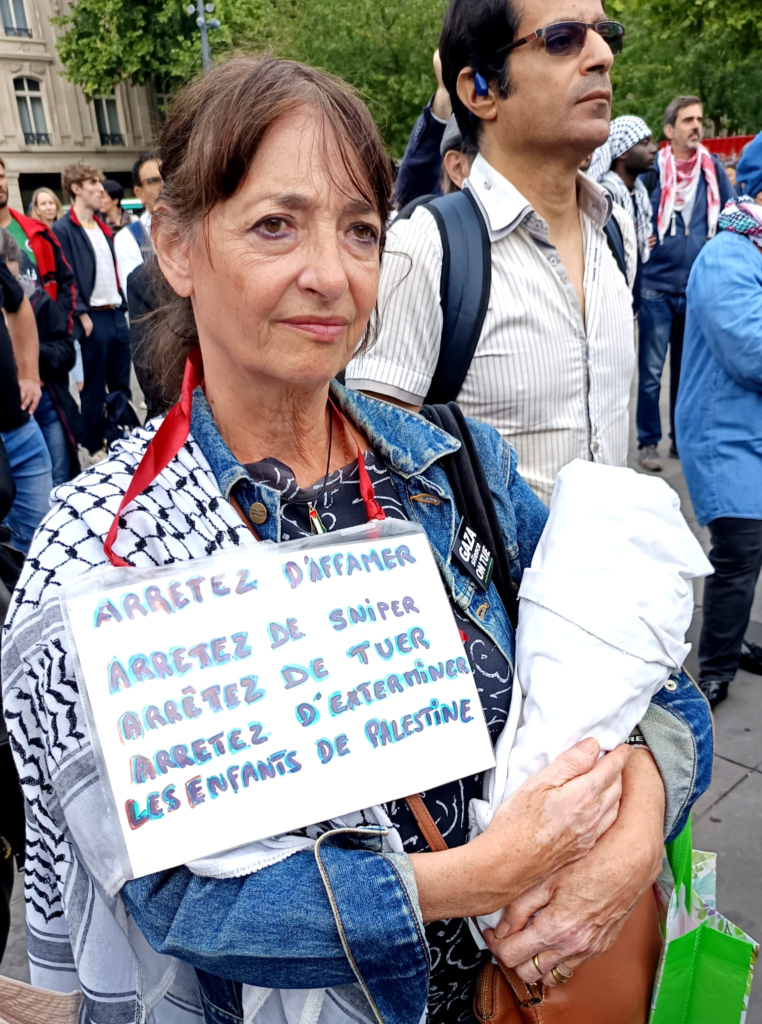 ARRETEZ D'AFFAMER
ARRETEZ DE SNIPER
ARRÊTEZ DE TUER
ARRETEZ D'EXTERMINER
LES ENFANTS DE PALESTINE
GAZA
ON TUE